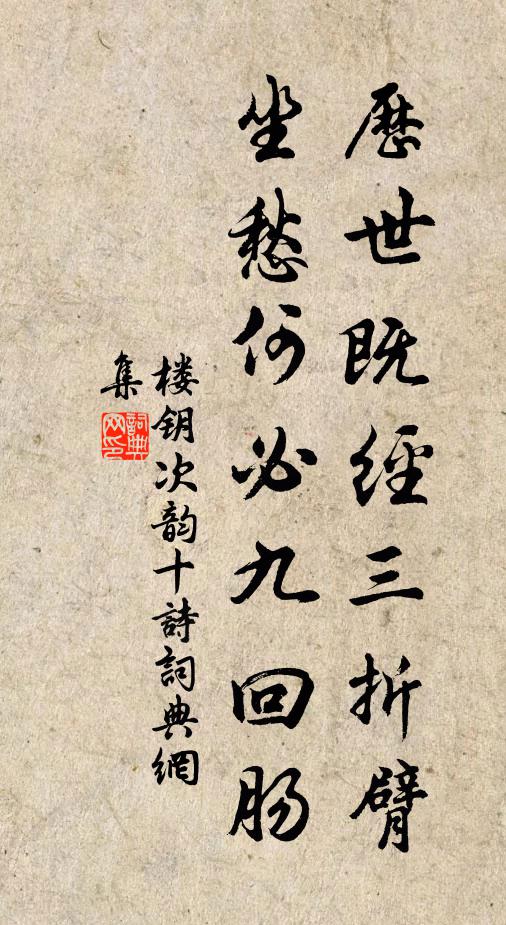 歷世既經三折臂
坐愁何必九回肠
楼钥次韵十詩詞典網
集
詞典
网印